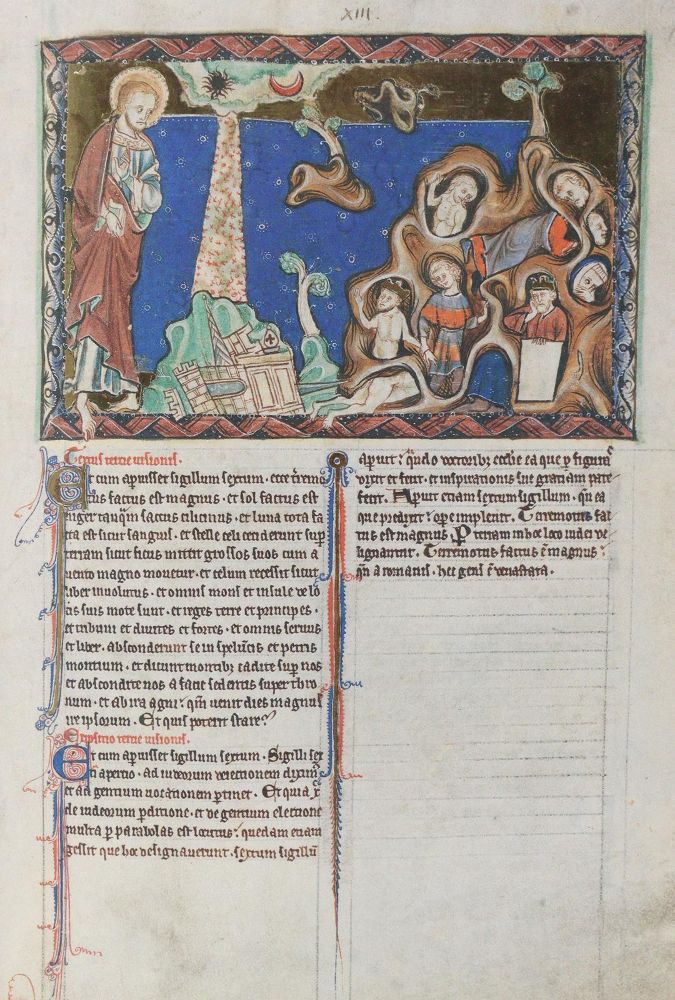 XIII.
Textus tercie visionis.
Et cum aperuisset sigillum sextum. ecce terremo
tus factus est magnus. et sol factus est
niger tanq̄m saccus cilicinus. et luna tota fa
cta est sicut sanguis. et stelle celi ceciderunt sup
terram sicut ficus mittit grossos suos cum a
uento magno mouetur. et celum recessit sicut
liber inuolutus. et omnis mons et insule de lo
cis suis mote sunt. et reges terre et principes.
et tribuni et diuites et fortes. et omnis seruus
et liber. absconderunt se in speluncis et petris
montium. et dicunt montibꝫ cadite sup nos
et abscondite nos a facie sedentis super thro
num. et ab ira agni. qm̄ uenit dies magnus
ire ipsorum. Et quis poterit stare?
Expositio tercie uisionis.
Et cum aperuisset sigillum sextum. Sigilli sex
ti apercio. ad iudeorum reiectionem
et ad gentium uocationem ptinet. Et quia xp̄c
de iudeorum pditione. et de gentium electione
multa p parabolas est locutus. quedam etiam
gessit que hoc designauerunt. sextum sigillū
aperuit. doctoribꝫ ecclie ea que p figurā
dixit et fecit. et inspirationis sue gratiam pate
fecit. Aperuit etiam sextum sigillum. qn̄ ea
que predixit. ope impleuit. Terremotus fac
tus est magnus. P terram in hoc loco iudei de
signantur. Terremotus factus ē magnus.
qn̄ a romanis. hec gens ē deuastata.